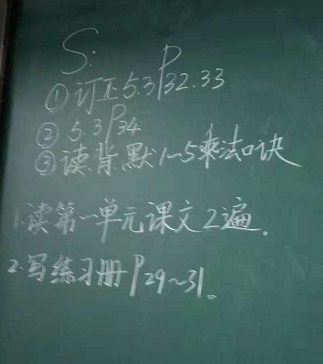 S:
①订正5.3P32.33
②5.3P34
③读.背.默1~5乘法口诀
1.读第一单元课文2遍。
2.写练习册P29~31。